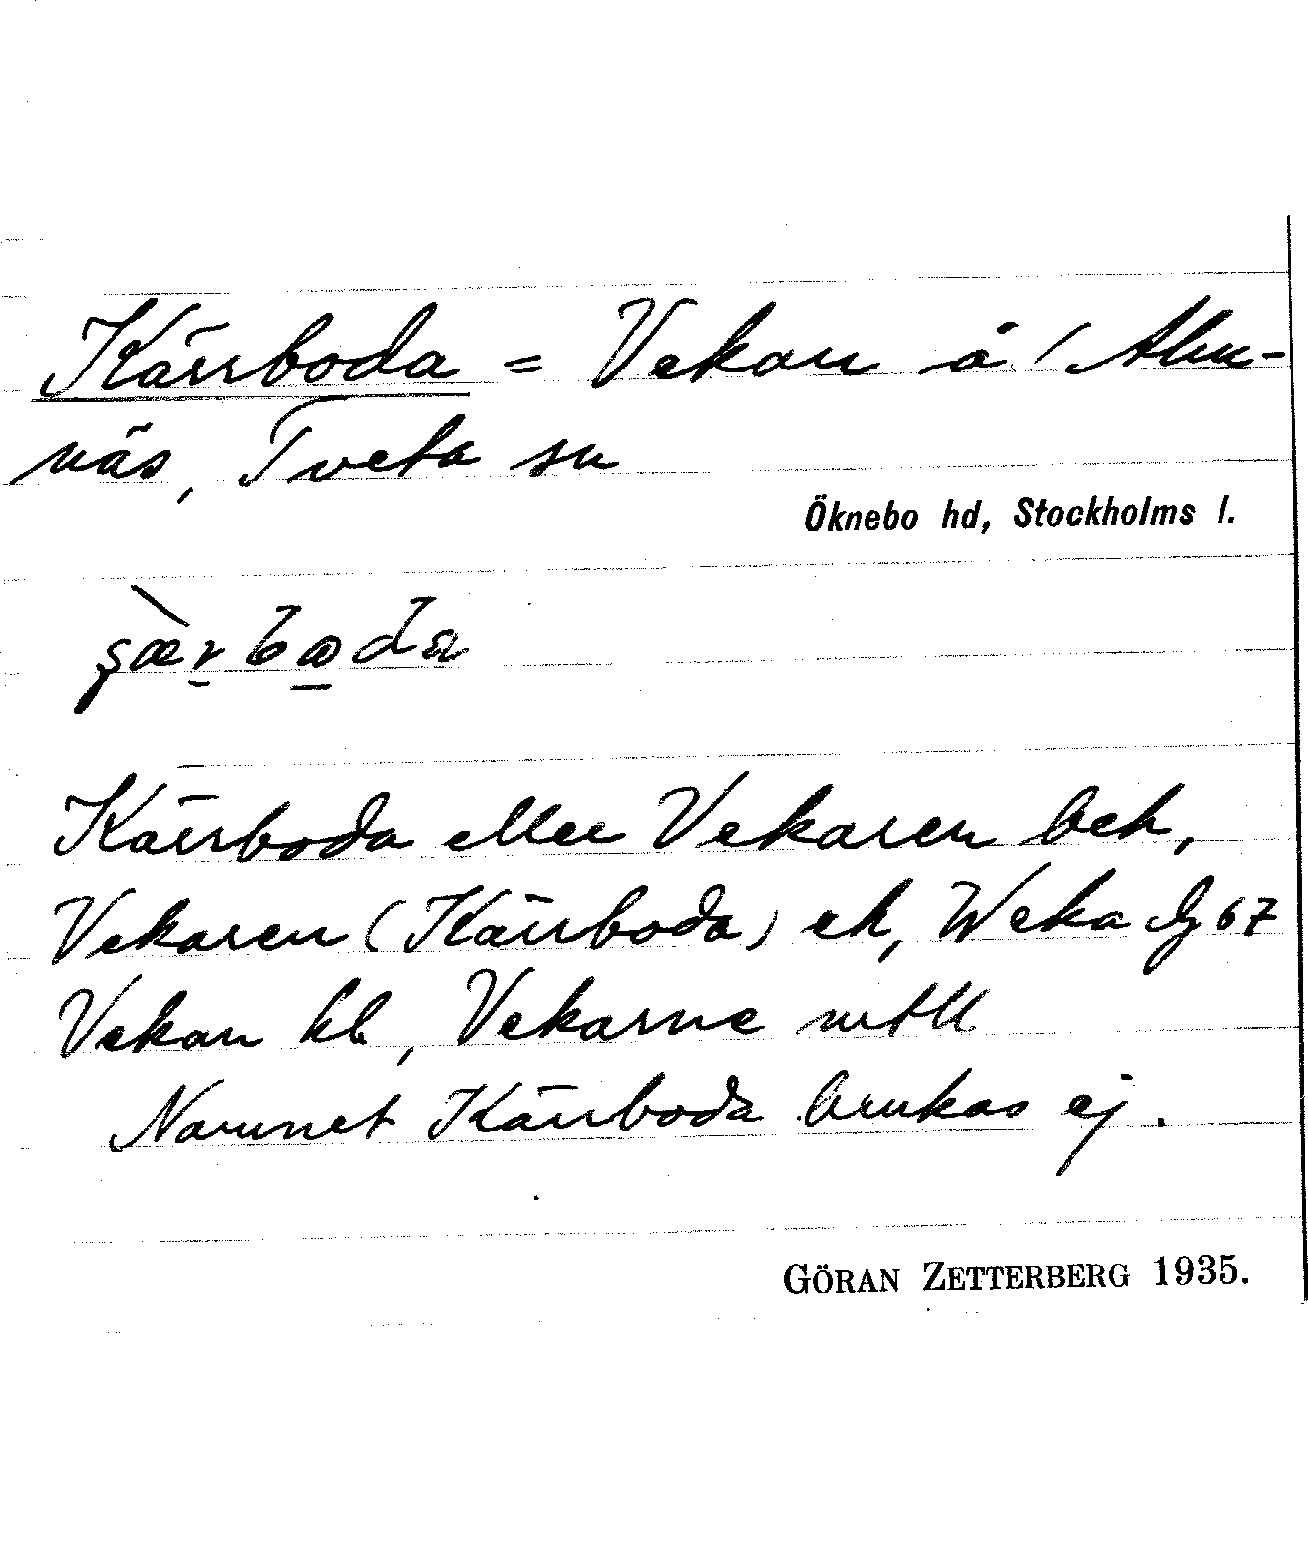 Kärrboda = Vekan å / Alm-
näs, Tveta sn
Öknebo hd, Stockholms l.
Kärrboda eller Vekaren bek,
Vekaren (Kärrboda) ek, Weka dg 67
Vekan kb, Vekarne mtll
Namnet Kärrboda brukas ej.
GÖRAN ZETTERBERG 1935.